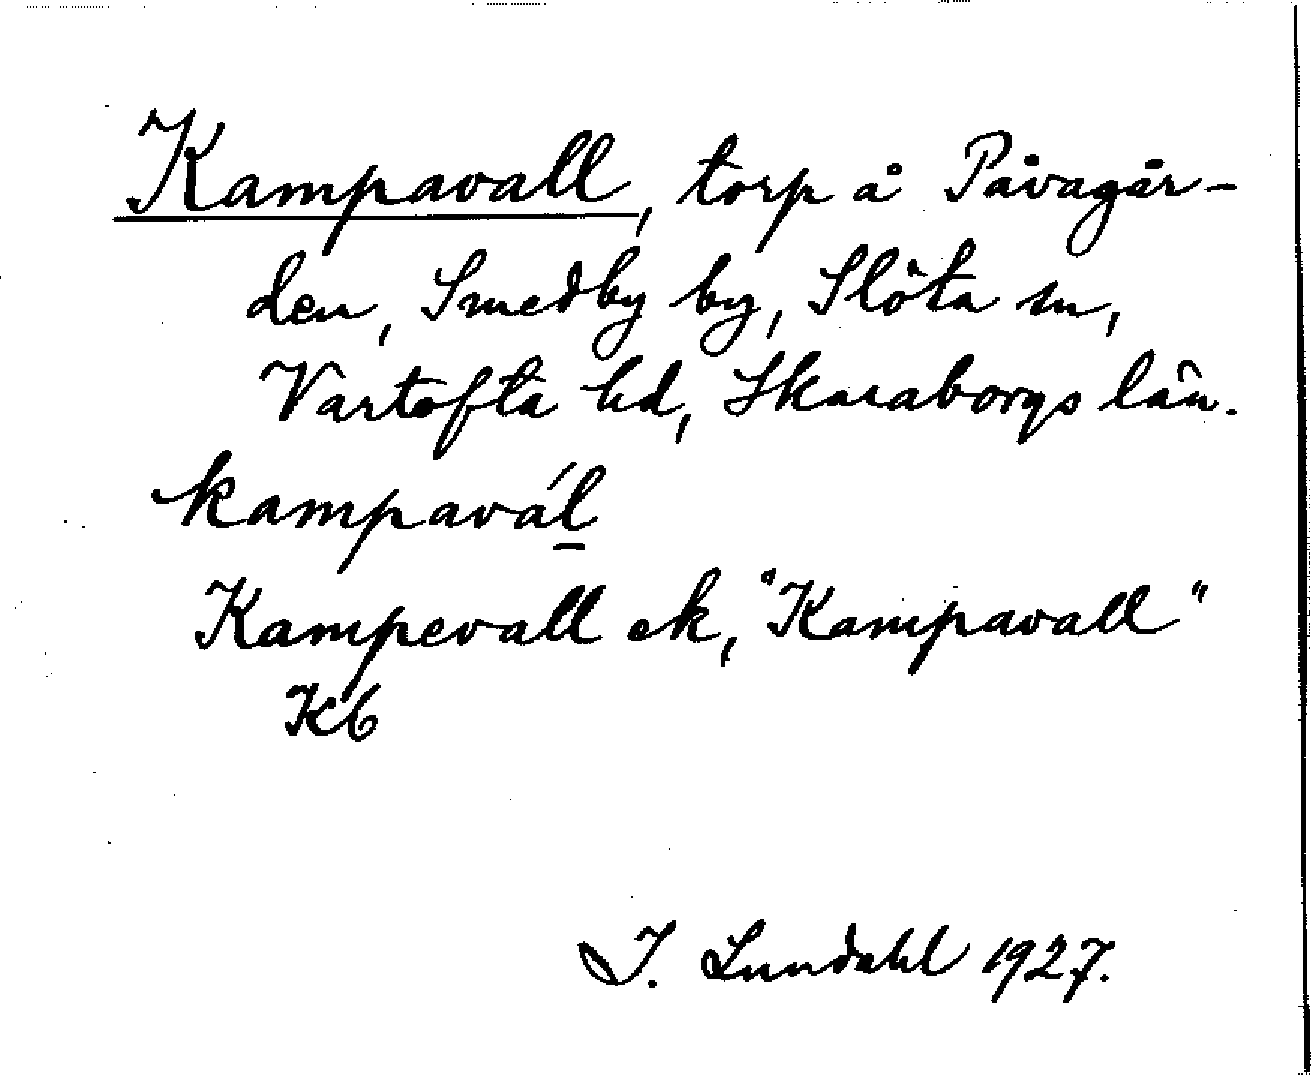 Kampavall, torp å Påvagår-
den, Smedby by, Slöta sn,
Vartofta hd, Skaraborgs län.
kampavál
Kampevall ek, "Kampavall"
Kb
I. Lundahl 1927.